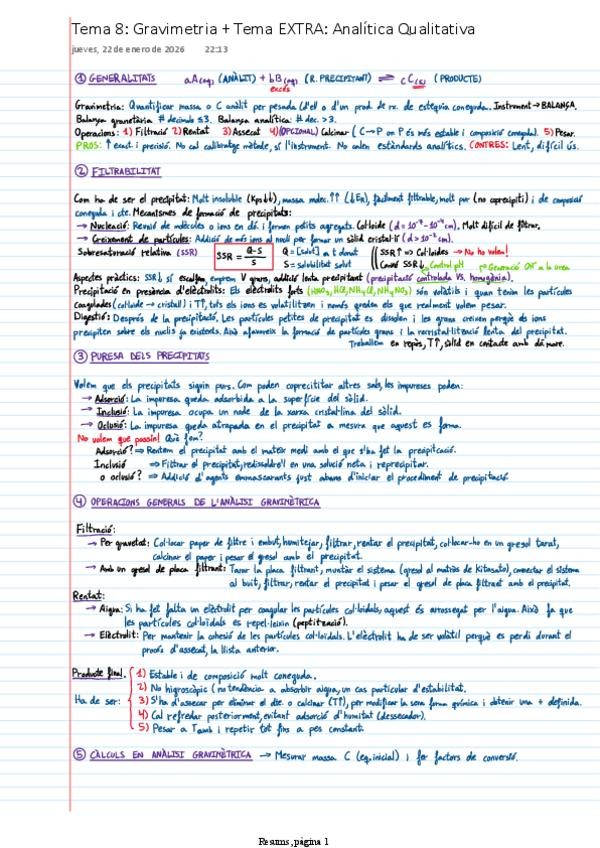 Tema 8: Gravimetria + Tema EXTRA: Analítica Qualitativa
jueves, 22 de enero de 2026 22:13
① GENERALITATS aA(aq) (ANÀLIT) + bB(aq) (R. PRECIPITANT) ⇌ cC(s) (PRODUCTE)
excés
Gravimetria: Quantificar massa o C anàlit per pesada (d'ell o d'un prod. de rx. de estequio coneguda. Instrument → BALANÇA.
Balança granetària: # decimals ≤3. Balança analítica: # dec. >3.
Operacions: 1) Filtració 2) Rentat 3) Assecat 4) (OPCIONAL) Calcinar (C → P on P és més estable i composició coneguda). 5) Pesar.
PROS: ↑ exact. i precisió. No cal calibratge mètode, sí l'instrument. No calen estàndards analítics. CONTRES: Lent, difícil ús.
② FILTRABILITAT
Com ha de ser el precipitat: Molt insoluble (Kps↓↓), massa molec. ↑↑ (↓Er), fàcilment filtrable, molt pur (no coprecipiti) i de composició
coneguda i cte. Mecanismes de formació de precipitats:
→ Nucleació: Reunió de molècules o ions en dis. i formen petits agregats. Col·loide (d = 10⁻⁸ - 10⁻⁴ cm). Molt difícil de filtrar.
→ Creixement de partícules: Addició de més ions al nucli per formar un sòlid cristal·lí (d > 10⁻⁴ cm).
Sobresaturació relativa (SSR) SSR = Q-S / S Q = [solut] a t donat SSR↑ => Col·loides → No ho volem!
S = solubilitat solut Control SSR↓ Control pH Generació OH⁻ a la urea
Aspectes pràctics: SSR↓ si escalfem, emprem V grans, addició lenta precipitant (precipitació controlada VS. homogènia).
Precipitació en presència d'electròlits: Els electròlits forts (HNO₃, HCl, NH₄Cl, NH₄NO₃) són volàtils i quan tenim les partícules
coagulades (col·loide → cristall) i T↑, tots els ions es volatilitzen i només queden els que realment volem pesar.
Digestió: Després de la precipitació. Les partícules petites de precipitat es dissolen i les grans creixen perquè els ions
precipiten sobre els nuclis ja existents. Això afavoreix la formació de partícules grans i la recristal·lització lenta del precipitat.
Treballem en repòs, T↑, sòlid en contacte amb d. mare.
③ PURESA DELS PRECIPITATS
Volem que els precipitats siguin purs. Com poden coprecitar altres sals, les impureses poden:
→ Adsorció: La impuresa queda adsorbida a la superfície del sòlid.
→ Inclusió: La impuresa ocupa un node de la xarxa cristal·lina del sòlid.
→ Oclusió: La impuresa queda atrapada en el precipitat a mesura que aquest es forma.
No volem que passin! Què fem?
Adsorció? ⇒ Rentem el precipitat amb el mateix medi amb el que s'ha fet la precipitcació.
Inclusió ⇒ Filtrar el precipitat, redissoldre'l en una solució neta i reprecipitar.
o oclusió? ⇒ Addició d'agents emmascarants just abans d'iniciar el procediment de precipitació
④ OPERACIONS GENERALS DE L'ANÀLISI GRAVIMÈTRICA
Filtració:
→ Per gravetat: Col·locar paper de filtre i embut, humitejar, filtrar, rentar el precipitat, col·locar-ho en un gresol tarat,
calcinar el paper i pesar el gresol amb el precipitat.
→ Amb un gresol de placa filtrant: Tarar la placa filtrant, muntar el sistema (gresol al matràs de kitasato), connectar el sistema
al buit, filtrar, rentar el precipitat i pesar el gresol de placa filtrant amb el precipitat.
Rentat:
→ Aigua: Si ha fet falta un electròlit per coagular les partícules col·loidals, aquest és arrossegat per l'aigua. Això fa que
les partícules col·loidals es repel·leixin (peptització).
→ Electròlit: Per mantenir la cohesió de les partícules col·loidals. L'electròlit ha de ser volàtil perquè es perdi durant el
procés d'assecat, la llista anterior.
Producte final. 1) Estable i de composició molt coneguda.
2) No higroscòpic (no tendència a absorbir aigua, un cas particular d'estabilitat.
Ha de ser: 3) S'ha d'assecar per eliminar el dis. o calcinar (T↑↑), per modificar la seva forma química i obtenir una + definida.
4) Cal refredar posteriorment, evitant adsorció d'humitat (dessecador).
5) Pesar a Tamb i repetir tot fins a pes constant.
⑤ CÀLCULS EN ANÀLISI GRAVIMÈTRICA → Mesurar massa C (eq. inicial) i fer factors de conversió.
Resums, página 1